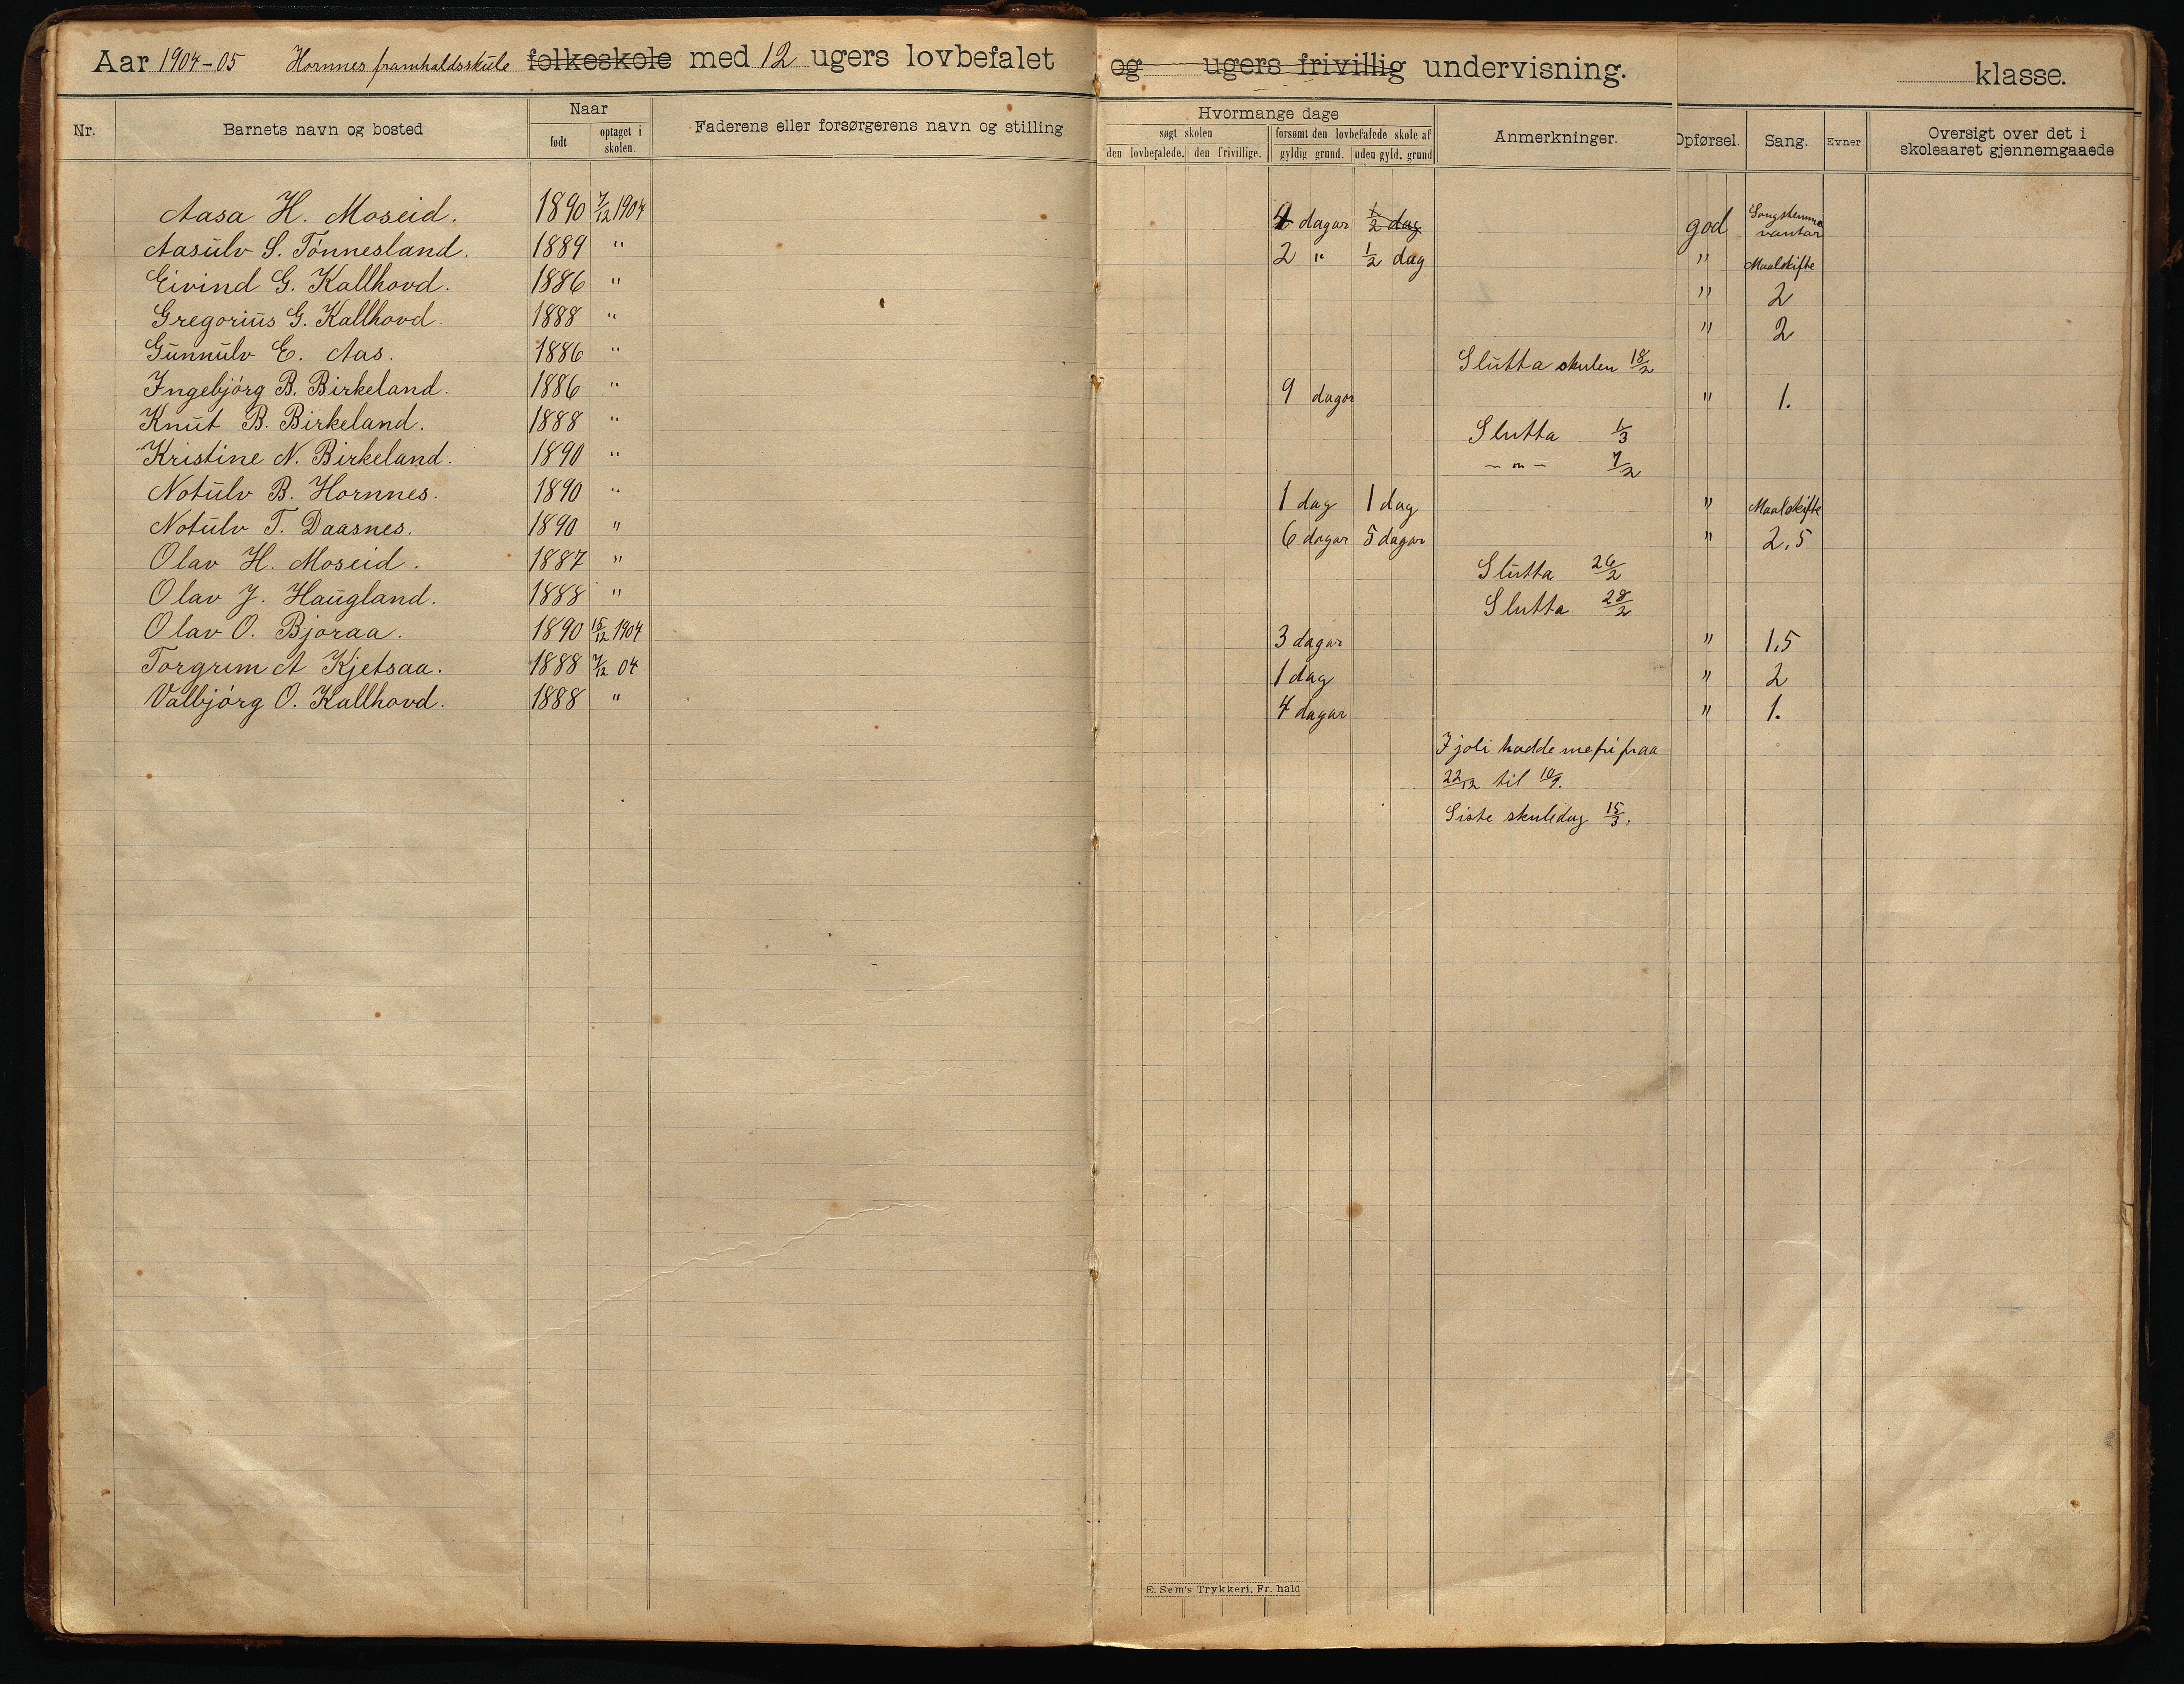 Aar 1904-05 Hornnes framhaldsskule folkeskole med 12 ugers lovbefalet og ugers frivillig undervisning. klasse.
Nr. Barnets navn og bosted Naar født optaget i skolen. Faderens eller forsørgerens navn og stilling Hvormange dage søgt skolen den lovbefalede. den frivillige. forsømt den lovbefalede skole af gyldig grund. uden gyld. grund Anmerkninger. Opførsel. Sang. Evner Oversigt over det i skoleaaret gjennemgaaede
Aasa H. Moseid. 1890 7/12 1904 4 dagar 1/2 dag god Songstemma vantar
Aasulv S. Tónnesland. 1889 " 2 " 1/2 dag " Maalskifte
Eivind G. Kallhovd. 1886 " " 2
Gregorius G. Kallhovd. 1888 " " 2
Gunnulv E. Aas. 1886 " Slutta skulen 18/2
Ingebjórg B. Birkeland. 1886 " 9 dagar " 1.
Knut B. Birkeland. 1888 " Slutta 1/3
Kristine N. Birkeland. 1890 " - " - 7/2
Notulv B. Hornnes. 1890 " 1 dag 1 dag " Maalskifte
Notulv T. Daasnes. 1890 " 6 dagar 5 dagar " 2.5
Olav H. Moseid. 1887 " Slutta 26/2
Olav J. Haugland. 1888 " Slutta 28/2
Olav O. Bjoraa. 1890 15/12 1904 3 dagar " 1.5
Torgrim A Kjetsaa. 1888 7/12 04 1 dag " 2
Valbjórg O. Kallhovd. 1888 " 4 dagar " 1.
I joli hadde me fri fraa
22/12 til 10/1.
Siste skuledag 15/3.
E. Sem's Trykkeri, Fr. hald